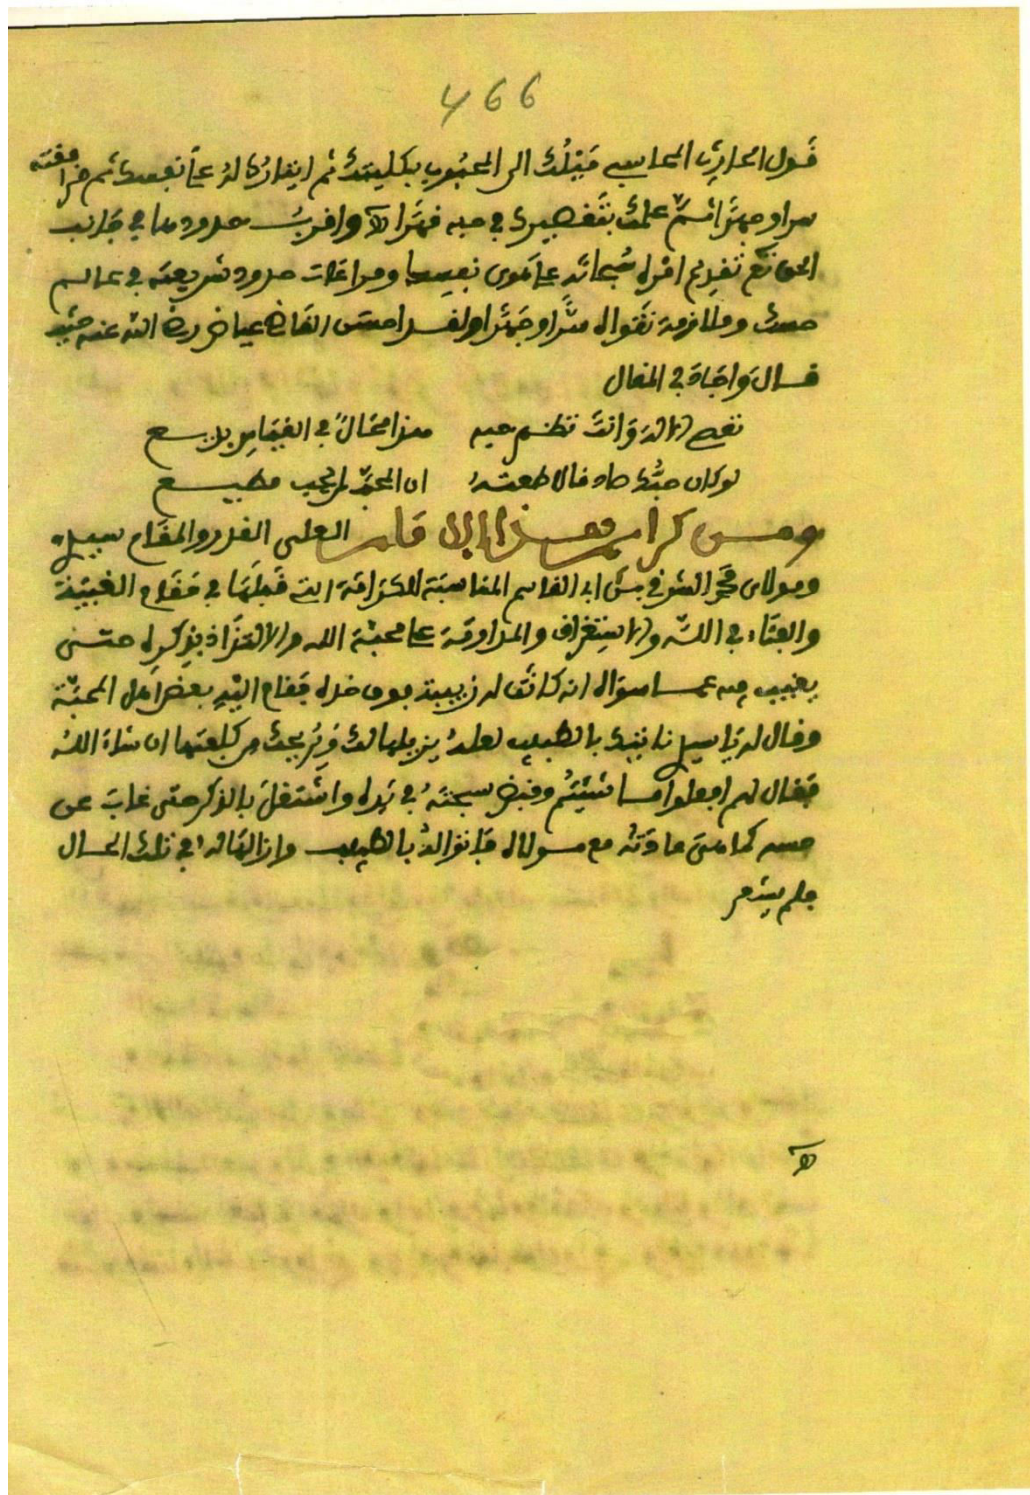 466
قول الحارث المحاسبي مَيْلُك الى المحبُوب بكليتك ثم ايثارُك لهُ على نفسك ثم موافقته
سرا وجهرًا ثمَّ علمك بتَقصيرك في حبه فهَذا
الحق تع تقديم امره سُبحانه على هَوى نفسك ومراعات حدود شريعته في عالم
حسك وملازمة تقواه سرًّا وجَهرًا ولقد احسن القاضي عياض رضي الله عنه حيث
قال وَاجَاد في المقال
تعصي الاله وَانتَ تظهر حبه هذا محَالٌ في القيَاسِ بديع
لو كان حبُّك صادقا لاطعتهُ ان المحبَّ لمن يحب مطيع
ومن كرامة هذا الامام العلي القدر والمقَام سيدي
ومولاي محمد الشرقي بن ابي القاسم المناسبَة للكرَامَة التي قبلَهَا في مَقَام الغيبَة
والفنَاء في اللّه والاستغراق والمداومَة على محبّة الله والالتزاذ بذكره حتى
يغيب به عما سواه انه كانت له زبيبة فدخل مقام اليه بعض اهل المحبّة
وقال له يَا سيدي ناتيك بالطبيب لعلهُ يزيلها لك وَيُريحك من كلفتها ان شاءَ اللهُ
فقال لهم افعلوا ما شئتُم وقبض سبحتهُ في يَده واشتغلَ بالذكر حتى غابَ عن
حسه كما هي عادَتهُ مع مولاه فَاتوا لهُ بالطبيب وازالهَا لهُ في تلك الحال
فلم يشعر